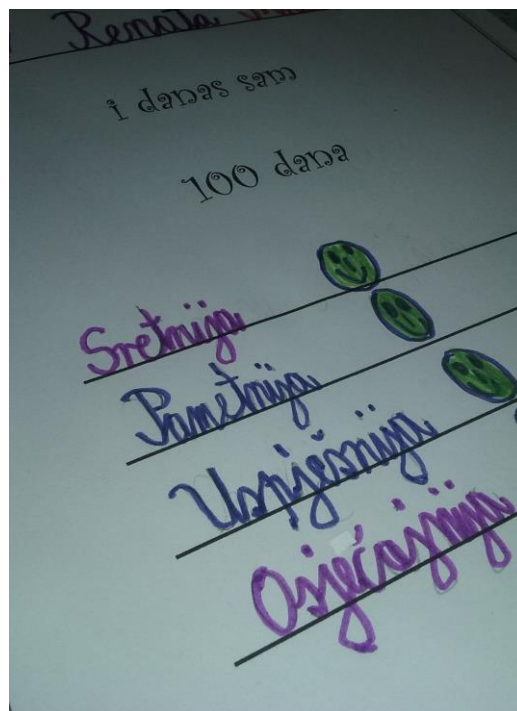 Renata
i danas sam
100 dana
Sretnija
Pametnija
Uspješnija
Osjećajnija